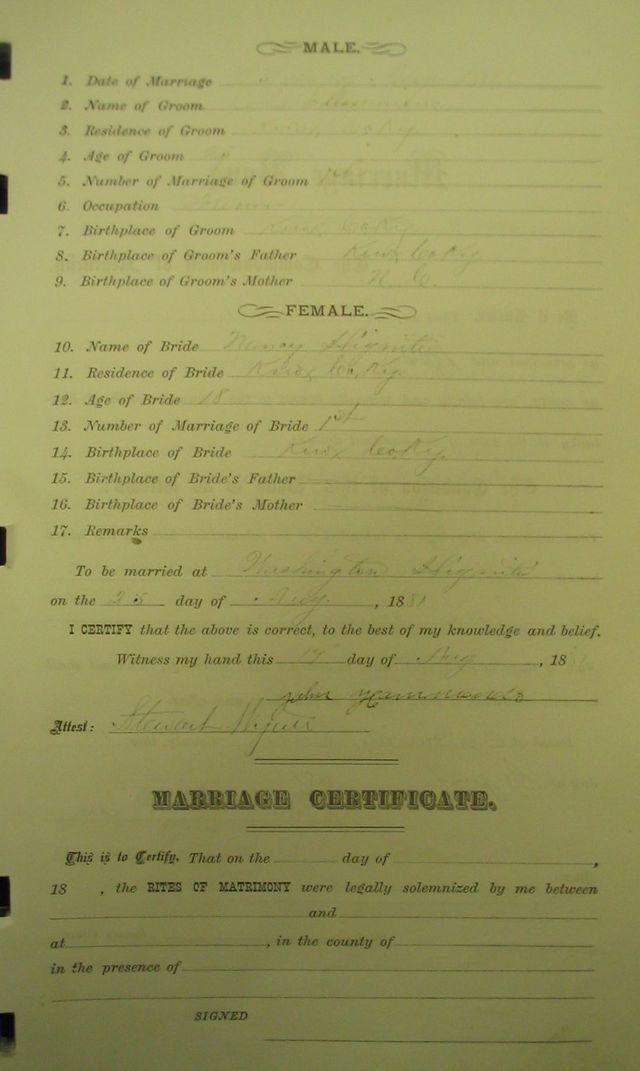 MALE.
1. Date of Marriage
2. Name of Groom
3. Residence of Groom Knox Co Ky
4. Age of Groom
5. Number of Marriage of Groom
6. Occupation
7. Birthplace of Groom Knox Co Ky
8. Birthplace of Groom's Father Knox Co Ky
9. Birthplace of Groom's Mother N. C.
FEMALE.
10. Name of Bride Nancy Hignite
11. Residence of Bride Knox Co, Ky.
12. Age of Bride 18
13. Number of Marriage of Bride 1st
14. Birthplace of Bride Knox Co, Ky.
15. Birthplace of Bride's Father
16. Birthplace of Bride's Mother
17. Remarks
To be married at Washington Hignite
on the 25 day of Aug. , 1881
I CERTIFY that the above is correct, to the best of my knowledge and belief.
Witness my hand this day of Aug , 18
John
Attest: Stewart
MARRIAGE CERTIFICATE.
This is to Certify, That on the day of ,
18 , the RITES OF MATRIMONY were legally solemnized by me between
and
at , in the county of
in the presence of
SIGNED